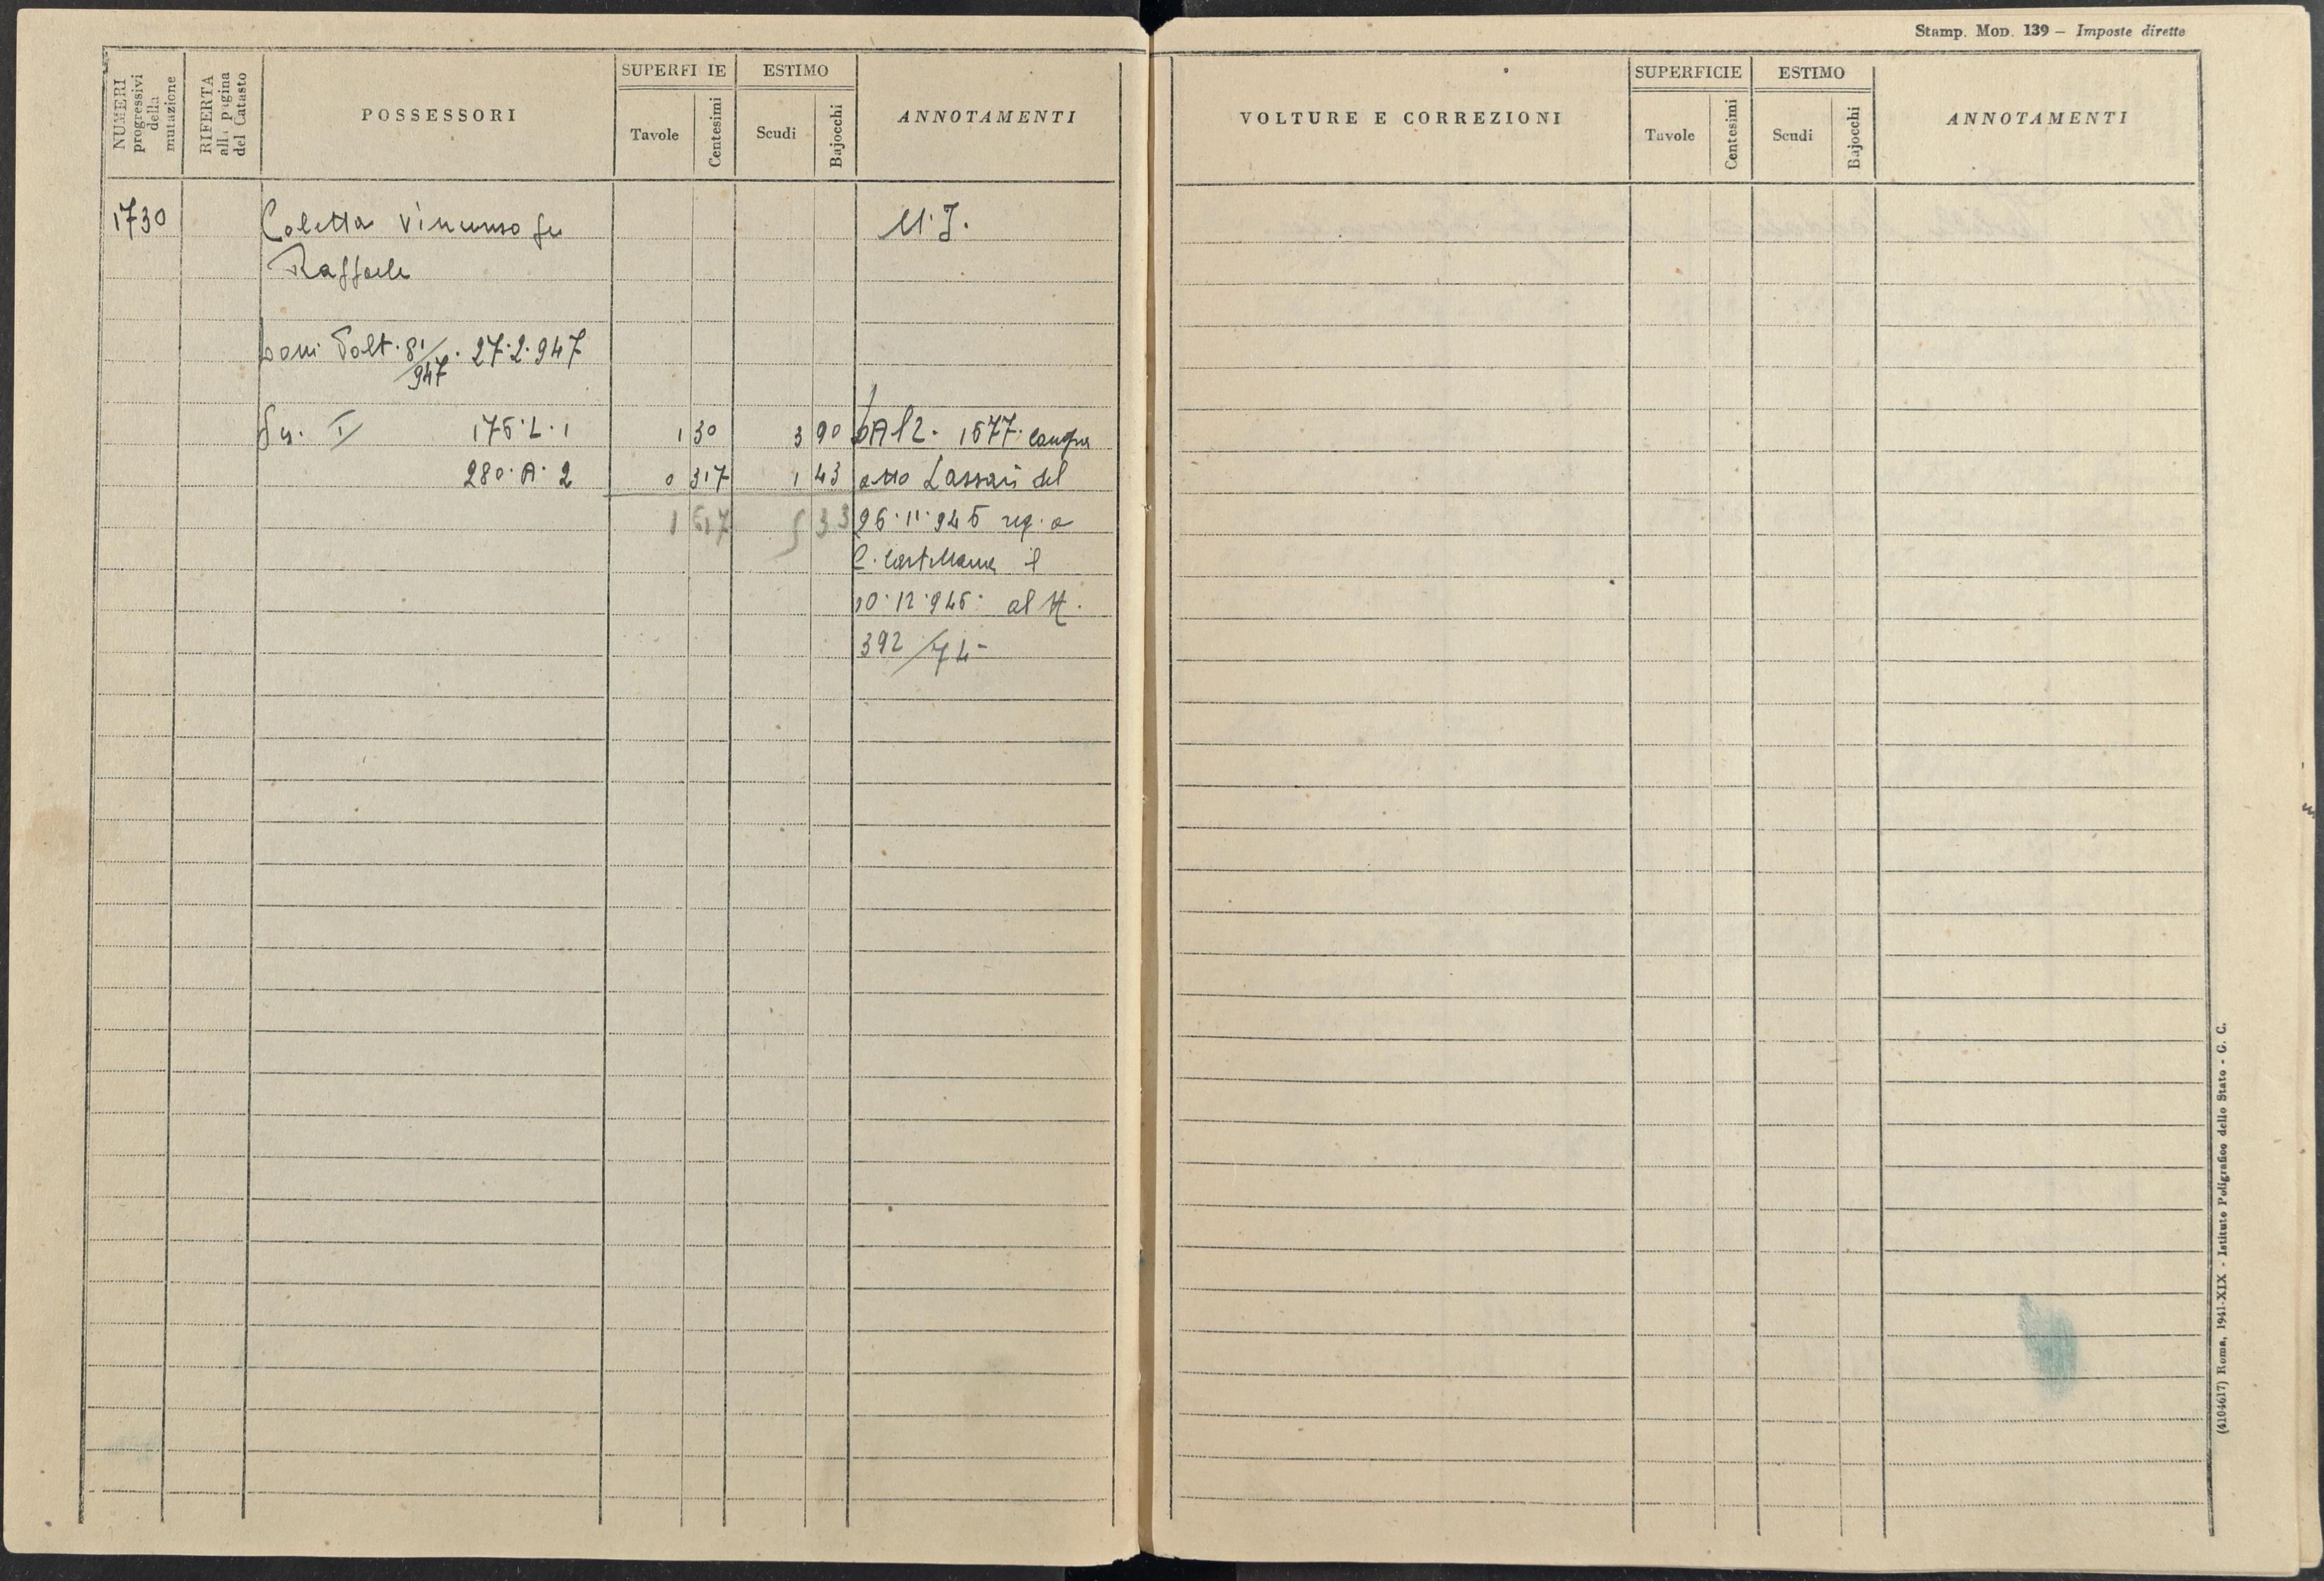 Stamp. Mod. 139 — Imposte dirette
NUMERI progressivi della mutazione
RIFERTA alla pagina del Catasto
POSSESSORI
SUPERFI IE
Tavole
Centesimi
ESTIMO
Scudi
Bajocchi
ANNOTAMENTI
VOLTURE E CORREZIONI
SUPERFICIE
Tavole
Centesimi
ESTIMO
Scudi
Bajocchi
ANNOTAMENTI
1730 Coletta Vincenzo fu
Raffaele
Volt. 81/947. 27.2.947
I 175.L.1 1 30 3 90 1577.
280.A.2 0 317 1 43 atto Lazzari del
1 617 5 33 26.11.946 reg. a
C. Castellana il
10.12.946. al N.
392/74-
(4104617) Roma, 1941-XIX - Istituto Poligrafico dello Stato - G. C.